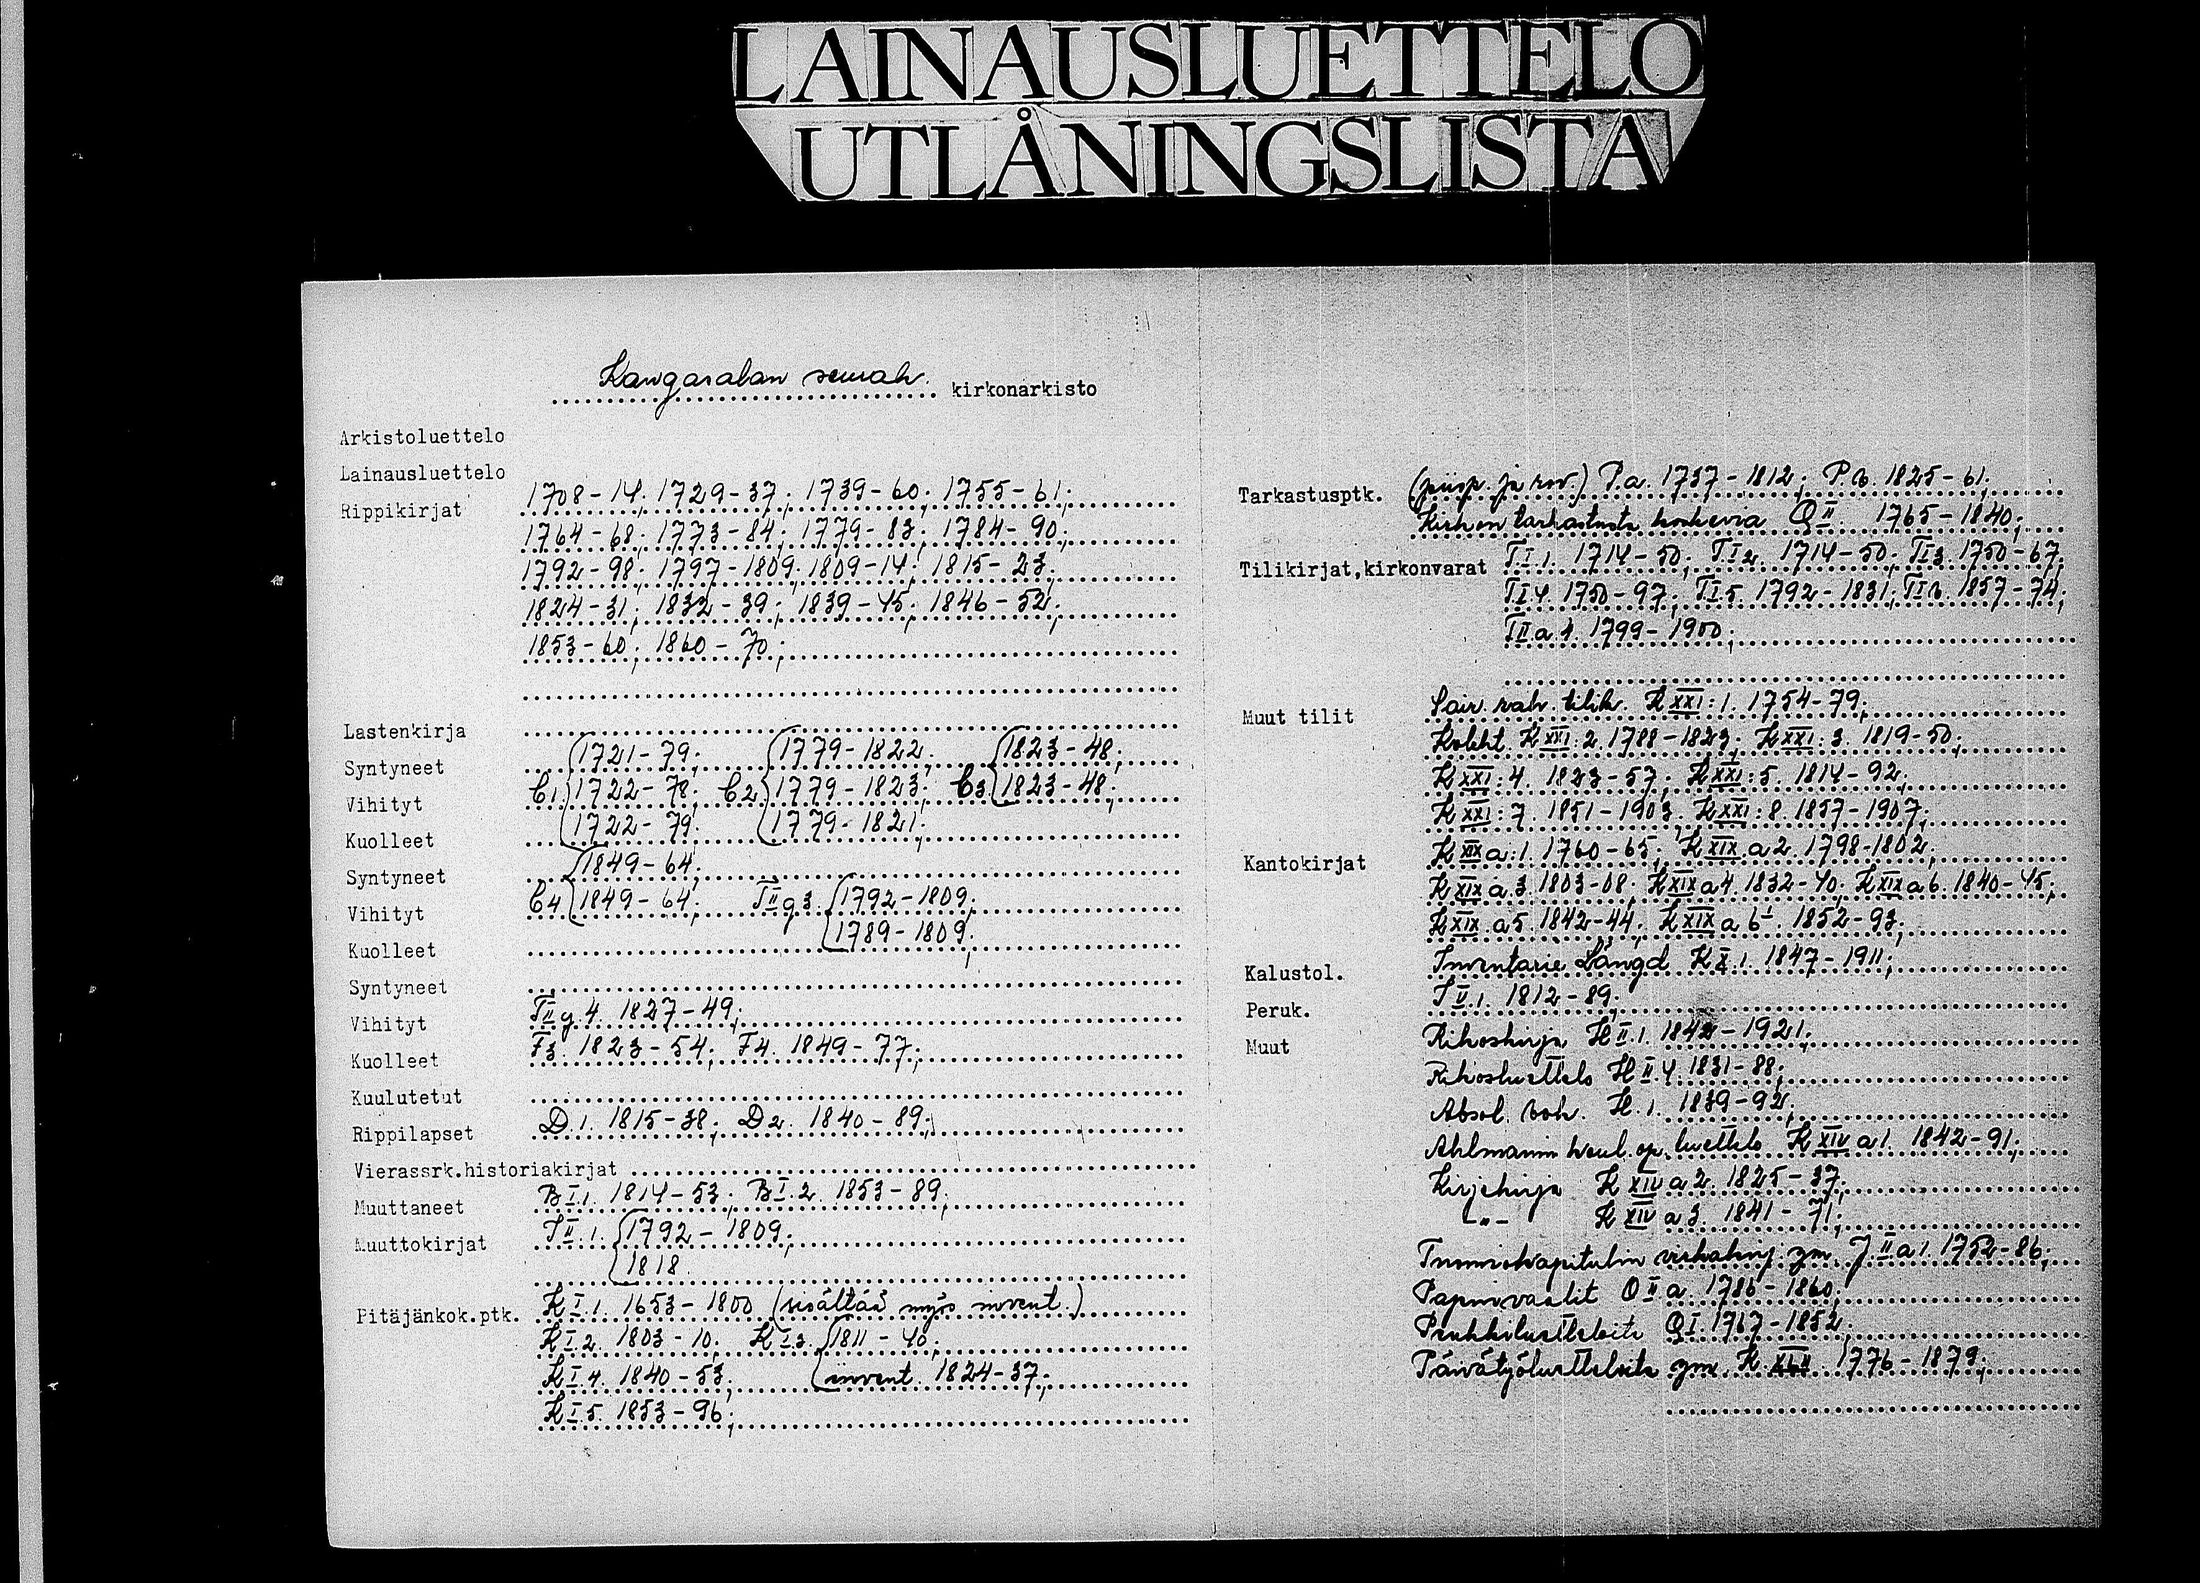 LAINAUSLUETTELO
UTLÅNINGSLISTA
Kangasalan seurak. kirkonarkisto
Arkistoluettelo
Lainausluettelo
Rippikirjat 1708-14; 1729-37; 1739-60; 1755-61;
1764-68; 1773-84; 1779-83; 1784-90;
1792-98; 1797-1809; 1809-14; 1815-23;
1824-31; 1832-39; 1839-45; 1846-52;
1853-60; 1860-70;
Lastenkirja
Syntyneet 1721-79; 1779-1822; 1823-48;
Vihityt C1 1722-78; C2 1779-1823; C3 1823-48;
Kuolleet 1722-79; 1779-1821;
Syntyneet 1849-64;
Vihityt C4 1849-64; TII g 3. 1792-1809;
Kuolleet 1789-1809;
Syntyneet
Vihityt TII g 4. 1827-49;
Kuolleet F3. 1823-54; F4. 1849-77;
Kuulutetut
Rippilapset D.1. 1815-38; D2. 1840-89;
Vierassrk.historiakirjat
Muuttaneet B I.1. 1814-53; B I.2. 1853-89;
Muuttokirjat II.1. 1792-1809;
1818.
Pitäjänkok.ptk. K I.1. 1653-1800 (sisältää myös invent.)
K I.2. 1803-10; K I.3. 1811-40;
K I.4. 1840-53; invent. 1824-37;
K I.5. 1853-96;
Tarkastusptk. (piisp. ja rov.) P.a. 1737-1812; P.b. 1825-61;
Kirkon tarkastusta koskevia Q II. 1765-1840;
Tilikirjat,kirkonvarat T I.1. 1714-50; T I 2. 1714-50; T I 3. 1750-67;
T I.4. 1750-97; T I 5. 1792-1831; T I 6. 1857-74;
T II a.1. 1799-1900;
Muut tilit Sair. rah. tilik. K XXI:1. 1754-79;
Koleht. K XXI:2. 1788-1823; K XXI:3. 1819-50;
K XXI:4. 1823-57; K XXI:5. 1814-92;
K XXI:7. 1851-1903. K XXI:8. 1857-1907;
Kantokirjat K XIX a:1. 1760-65; K XIX a 2. 1798-1802;
K XIX a 3. 1803-08; K XIX a 4. 1832-40; K XIX a 6. 1840-45;
K XIX a 5. 1842-44; K XIX a 6 1852-93;
Kalustol. Inventarie Längd K X.1. 1847-1911;
Peruk. I V.1. 1812-89;
Muut Rikoskirja H II.1. 1842-1921;
Rikosluettelo H II.4. 1831-88;
Absol. bok. H.1. 1839-92;
Ahlmannin koul. op. luettelo K XIV a 1. 1842-91;
Kirjekirja K XIV a 2. 1825-37;
-"- K XIV a 3. 1841-71;
Tuomiokapitulin virkakirj. ym. J II a 1. 1752-86;
Papinvaalit O II a. 1786-1860;
Penkkiluetteloita Q I. 1767-1852;
Päivätyöluetteloita ym. K 1776-1879;